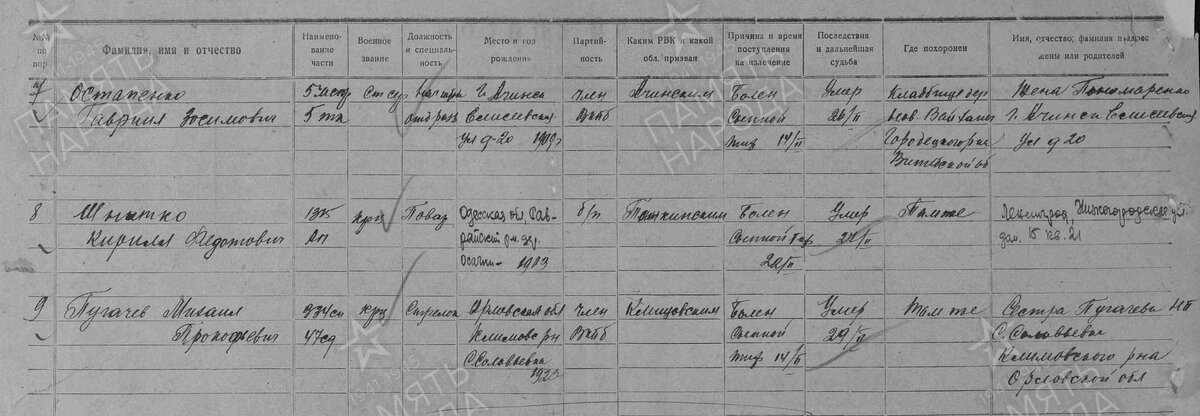 №№ по пор
Фамилия, имя и отчество
Наимено-
вание
части
Военное
звание
Должность
и специаль-
ность
Место и год
рождения
Партий-
ность
Каким РВК и какой
обл. призван
Причина и время
поступления
на излечение
Последствия
и дальнейшая
судьба
Где похоронен
Имя, отчество, фамилия и адрес
жены или родителей
7
Остапенко
Гавриил Зосимович
5 тк
г. Ачинск
Елисеевская
ул д-20 1909г
член
ВКПб
Ачинским
Болен
Сыпной
тиф 14/II
Умер
26/II
Кладбище дер
Городецкого р-на
Витебской об
Жена Пономаренко
г. Ачинск Елисеевская
ул д 20
8
Шнытко
Кирилл Федотович
1315
ап
крц
Повар
Одесская обл.
Осачки- 1913
б/п
Болен
Сыпной тиф
22/II
Умер
27/II
Там же
Ленинград, Нижегородская ул.
дом. 15 кв. 21
9
Пугачев Михаил
Прокофьевич
934 сп
47 сд
крц
Стрелок
Орловская обл
Климовс р-н
С. Соловьевка
1923
член
ВКПб
Климовским
Болен
Сыпной
тиф 14/II
Умер
29/II
Там же
Сестра Пугачева НП
С. Соловьевка
Климовского р-на
Орловской обл
ПАМЯТЬ
НАРОДА